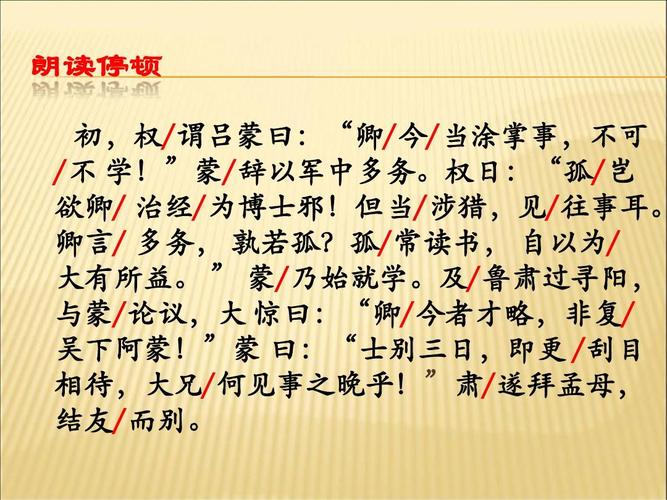 朗读停顿
初，权/谓吕蒙曰：“卿/今/当涂掌事，不可
/不 学！”蒙/辞以军中多务。权曰：“孤/岂
欲卿/ 治经/为博士邪！但当/涉猎，见/往事耳。
卿言/ 多务，孰若孤？孤/常读书， 自以为/
大有所益。” 蒙/乃始就学。及/鲁肃过寻阳，
与蒙/论议，大 惊曰：“卿/今者才略，非复/
吴下阿蒙！”蒙 曰：“士别三日，即更/刮目
相待，大兄/何见事之晚乎！”肃/遂拜孟母，
结友/而别。